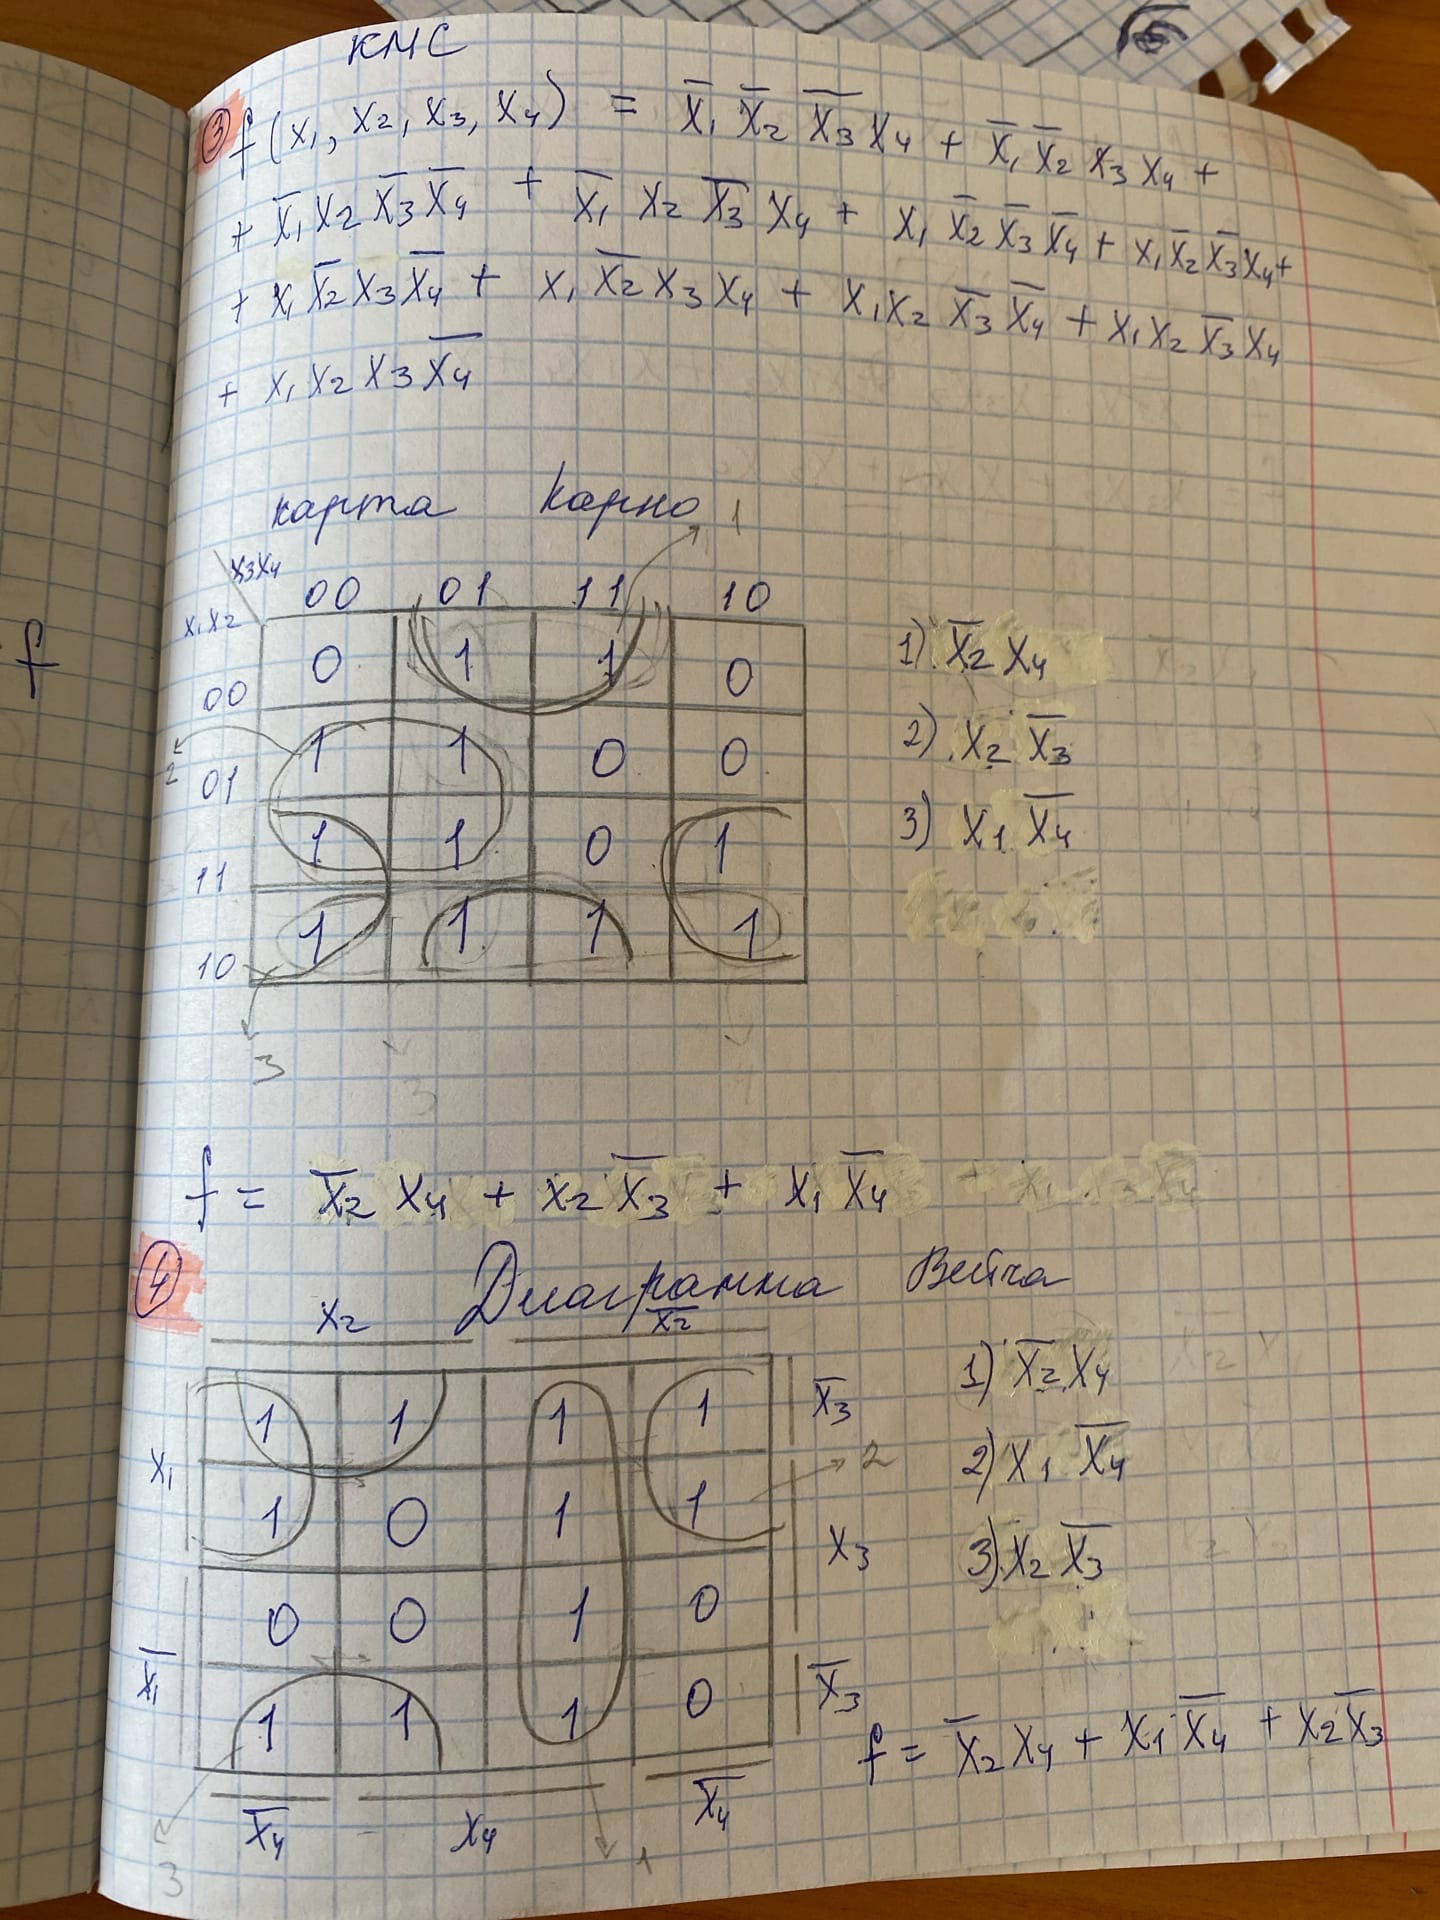 КМС
③ f(x₁, x₂, x₃, x₄) = x̅₁ x̅₂ x̅₃ x₄ + x̅₁ x̅₂ x₃ x₄ +
+ x̅₁ x₂ x̅₃ x̅₄ + x̅₁ x₂ x̅₃ x₄ + x₁ x̅₂ x̅₃ x̅₄ + x₁ x̅₂ x̅₃ x₄ +
+ x₁ x̅₂ x₃ x̅₄ + x₁ x̅₂ x₃ x₄ + x₁ x₂ x̅₃ x̅₄ + x₁ x₂ x̅₃ x₄
+ x₁ x₂ x₃ x̅₄
карта Карно
1
x₃x₄ 00 01 11 10
x₁x₂
f
00 0 1 1 0
01 1 1 0 0
11 1 1 0 1
10 1 1 1 1
2
3
1) x̅₂ x₄
2) x₂ x̅₃
3) x₁ x̅₄
f = x̅₂ x₄ + x₂ x̅₃ + x₁ x̅₄
④ Диаграмма Вейча
x₂ x̅₂
1 1 1 1 x̅₃
x₁
1 0 1 1 2
x₃
0 0 1 0
x̅₁
1 1 1 0 x̅₃
x̅₄ x₄ x̅₄
3 1
1) x̅₂ x₄
2) x₁ x̅₄
3) x₂ x̅₃
f = x̅₂ x₄ + x₁ x̅₄ + x₂ x̅₃